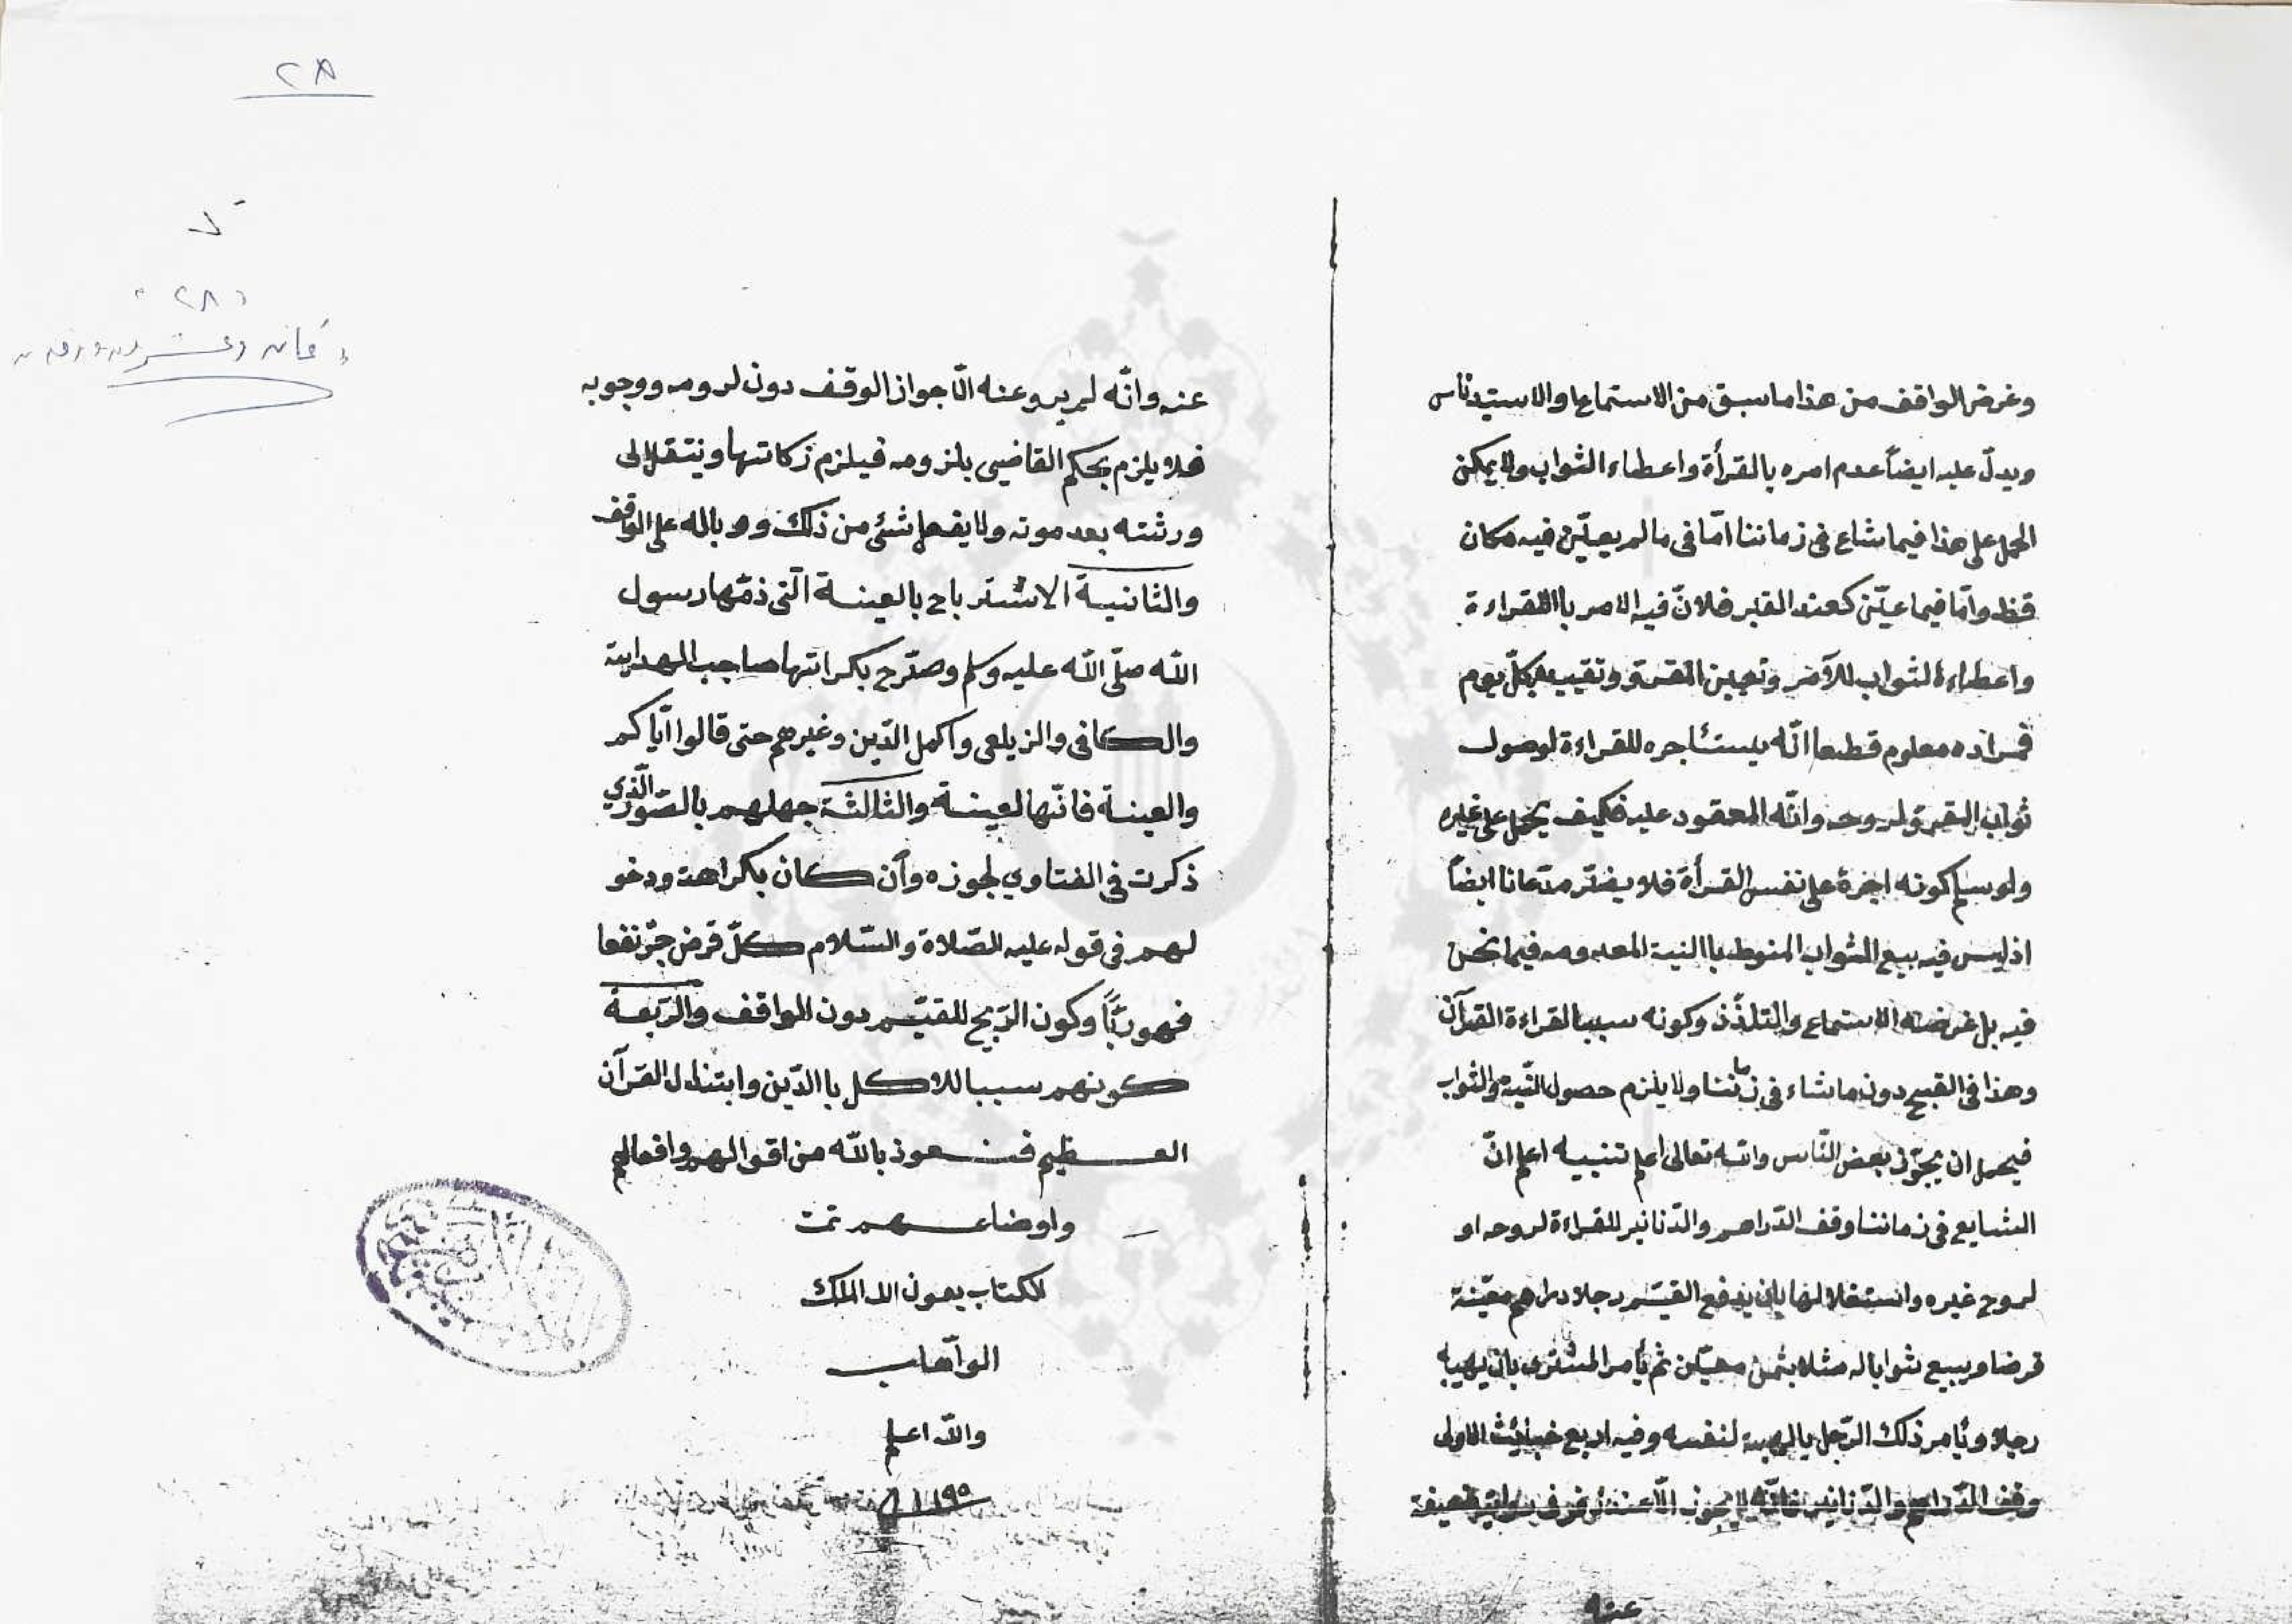 ٢٨
وغرض الواقف من هذا ما سبق من الاستماع والاستيناس
ويدلّ عليه ايضاً عدم امره بالقرأة واعطاء الثواب ولا يمكن
الحمل على هذا فيما شاع فى زماننا امّا فى ما لم يعيّن فيه مكان
قط وامّا فيما عيّن كعند القبر فلانّ فيه الامر باالقراءة
واعطاء الثواب للآمر وتعيين القرأة وتقييد بكلّ يوم
فمراده معلوم قطعا انّه يستأجره للقراءة لوصول
ثواب القرأة لروحه وانّه المعقود عليه فكيف يحمل على غيره
ولو سلم كونه اجرة على نفس القرأة فلا يضرّ مدّعانا ايضاً
اذ ليس فيه بيع الثواب المنوط باالنية المعدومه فيما نحن
فيه بل غرضه الاستماع والتلذّذ وكونه سببا لقراءة القرآن
وهذا فى القبيح دون ما شاء فى زماننا ولا يلزم حصول النّيه والثواب
فيحمل ان يجوّز بعض النّاس والله تعالى اعلم تنبيه اعلم انّ
الشايع فى زماننا وقف الدّراهم والدّنانير للقراءة لروحه او
لروح غيره واستغلالها بان يدفع القيّم رجلا دراهم معيّنة
قرضا ويبيع ثوابا له مثلا بثمن معيّن ثم يأمر المشترى بان يهبه
رجلا ويأمر ذلك الرّجل بالهبة لنفسه وفيه اربع خبائث الاولى
وقف الدّراهم والدّنانير فانّه لا يجوز الّا عند زفر فى رواية ضعيفة
عنه
عنه وانّه لم يرو عنه الّا جواز الوقف دون لزومه ووجوبه
فلا يلزم بحكم القاضيى بلزومه فيلزم زكاتها وينتقل الى
ورثته بعد موته ولا يفعل شئ من ذلك ووباله على الواقف
والثانية الاسترباح بالعينة الّتى ذمّها رسول
اللّه صلّى اللّه عليه وسلم وصرّح بكراتها صاحب الهداية
والكافى والزيلعى واكمل الدّين وغيرهم حتى قالوا ايّاكم
والعينة فانّها لعينة والثالثة جهلهم بالصّور الّذي
ذكرت فى الفتاوي لجوزه وآن كان بكراهة ودخو
لهم فى قوله عليه الصّلاة والسّلام كلّ قرض جرّ نفعا
فهو ربًا وكون الرّبح للقيّم دون الواقف والرّبعة
كونهم سببا للاكل باالدّين وابتذال القرآن
العظيم فنعوذ باللّه من اقوالهم وافعالهم
واوضاعهم تمت
الكتاب بعون الله الملك
الوآهاب
واللّه اعلم
١١٩٥